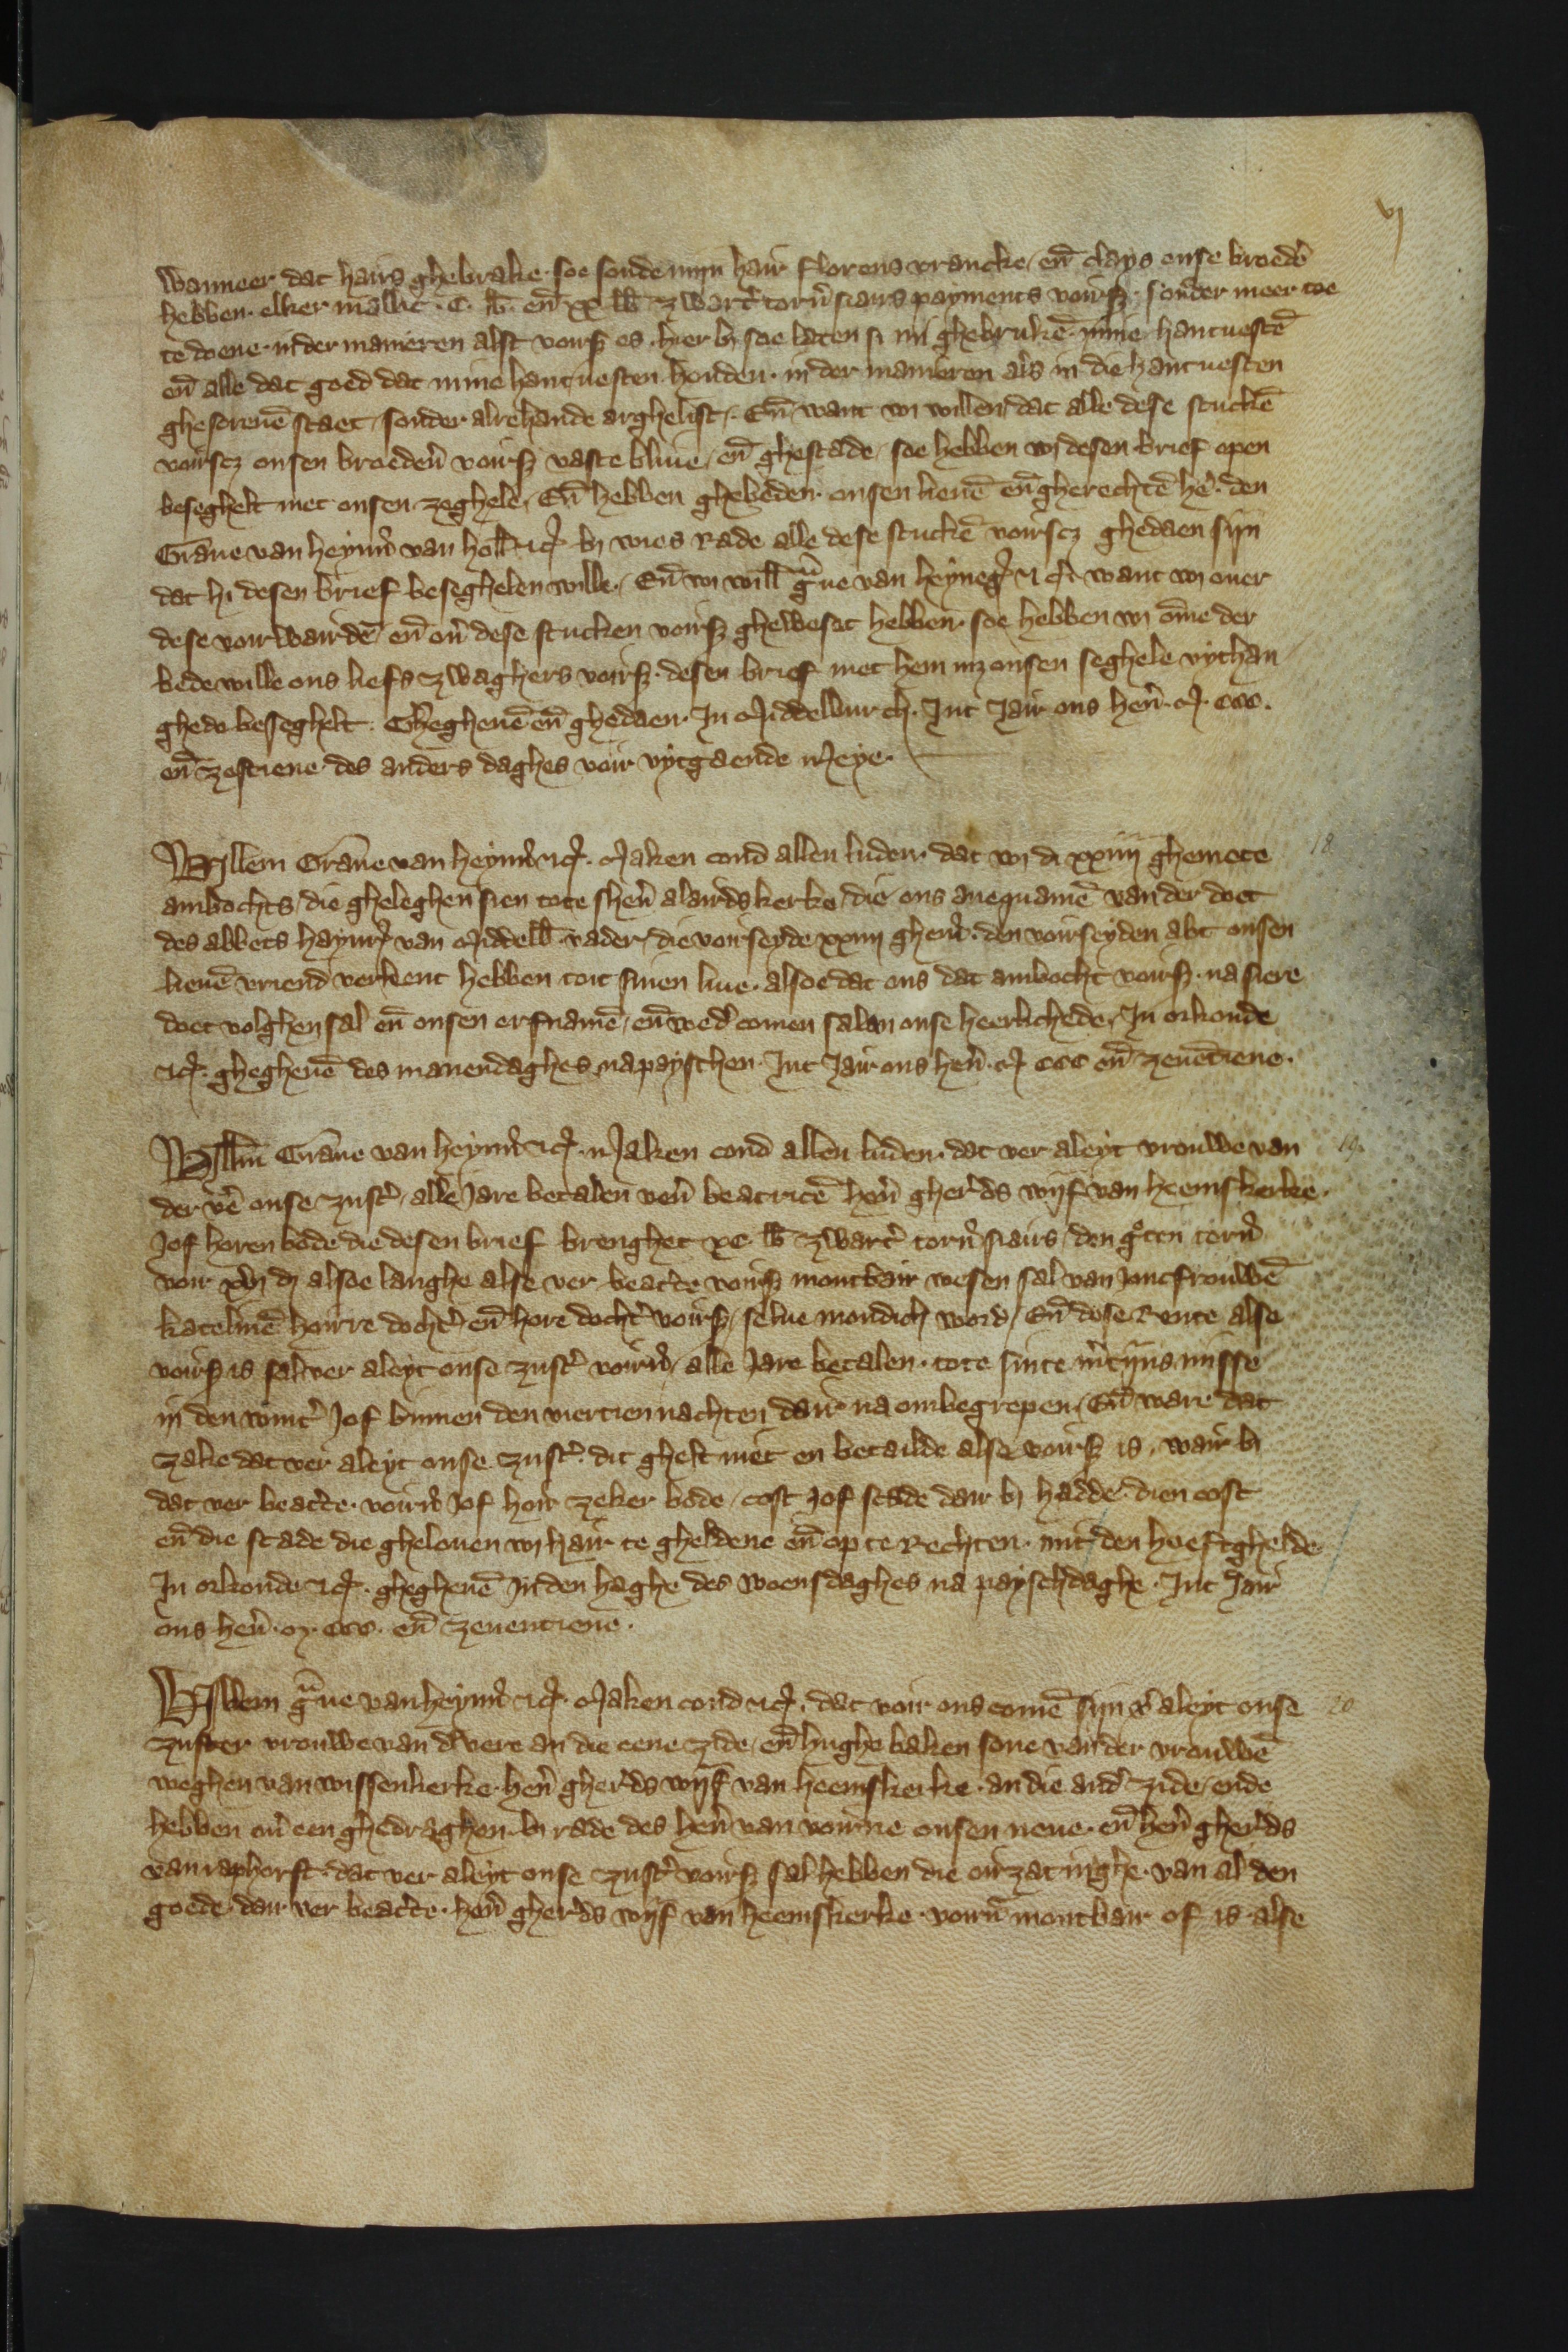 vj
wanneer dat hairs ghebrake · soe soude mijn hair florens vrancke / en̄ clays onse broed̓
hebben · elker mallic · C · lb̄ · en̄ xx lb̄ zwart̓ torn̓ siairs payments voirs̄ · sonder meer toe
te doene · in der manieren alst voirs̄ es · hier bi soe laten si mi ghebrukē · mine hantuestē
en̄ alle dat goed dat mine hantuesten houden · in der manieren als in die hantuesten
ghescreuē staet / sonder alrehande arghelist / · En̄ want wi willen dat alle dese stuckē
voirscz onsen broeden̓ voirs̄ vaste bliue / en̄ ghestade / soe hebben wi desen brief open
beseghelt met onsen zeghele / En̄ hebben ghebeden · onsen lieuē en̄ gherechtē he̓ · den
Graue van heyn̄ van holl̄ ⁊c̄ bi wies Rade alle dese stuckē voirscz ghedaen sijn
dat hi desen brief beseghelen wille / En̄ wi will̄ gͣue van heyneg̓ ⁊ c̄ want wi ouer
dese voirwairdē en̄ ou̓ dese stucken voirs̄ gheweset hebben · soe hebben wi ōme der
bede wille ons liefs zwaghers voirs̄ · desen brief met hem mz onsen seghele vythan
ghede besseghelt · Ghegheuē en̄ ghedaen · In Middelburch · Int Jair ons hen̓ · M · CCC ·
en̄ zestiene · des anders daghes voir vytgaende Meye ·
Willem Graue van heyn̄ ⁊c̄ · Maken cond allen luden · dat wi di xxiiii ghemete
ambochts / die gheleghen sien tote shen̓ alairdskerke / die ons anequamē van der doet
des abbets haynr̓ van Middelb̄ · vader / die voirseyde xxiiii ghem̓ · den voirseyden abt onsen
lieuē vriend verlient hebben toit sinen liue · alsoe dat ons dat ambocht voirs̄ · na siere
doet volghen sal en̄ onsen erfnamē / en̄ wed̓ comen sal in onse heerlichede / In orkonde
⁊c̄ · ghegheuē des manendaghes na payschen · Int Jair ons hen̓ · M CCC en̄ zeuētiene ·
Will̄m Graue van heyn̄ ⁊c̄ · Maken cond allen luden · dat ver aleyt vrouwe van
der ve̓ onse zust̓ / alle Jare betalen ven̓ beatricē hen̓ gher̓ds wijf van heemskerke ·
Jof horen bode die desen brief brenghet xc · lb̄ zwart̓ torn̓ siairs / den gͦten torn̓
voir xvj d̄ alsoe langhe alse ver beat̓te voirs̄ montbair wesen sal van Joncfrouwē
katelinē hoirre docht̓ en̄ hore docht̓ voirs̄ / selue mondich word / En̄ dese Rente alse
voirs̄ is sal ver aleyt onse zust̓ voirn̓ / alle Jare betalen · tote sinte m̓tijns misse
in den wint̓ Jof binnen den viertien nachten dair na ombegrepen / En̄ ware dat
zake dat ver aleyt onse zust̓ · dit ghelt niet en betailde alse voirs̄ is / wair bi
dat ver beat̓te · voirn̓ Jof hoir zeker bode / cost Jof scade dair bi hadde · dien cost
en̄ die scade die ghelouen wi hair te gheldene en̄ op te Rechten · mit den hoeftghelde
In orkonde ⁊c̄ · ghegheuē in den haghe des woensdaghes na payschdaghe · Int Jair
ons hen̓ · M · CCC · en̄ zeuentiene ·
Willem gͣue van heyn̄ ⁊c̄ · Maken cond ⁊c̄ · dat voir ons comē sijn v̓ aleyt onse
zuster vrouwe van d̓ vere an die eene zide / en̄ hughe baken sone van der vrouwē
weghen van wissenkerke · hen̓ gher̓ds wijf van heemskerke · an die and̓ zide / ende
hebben ou̓ een ghedraghen · bi rade des hen̓ van voirne onsen neue · en̄ hen̓ gher̓ds
van raphorst · dat ver aleyt onse zust̓ voirs̄ sal hebben die oirzatinghe · van al den
goede · dair ver beat̓te · hen̓ gher̓ds wijf van heemskerke · voirn̓ montbair of is · alse
18
19.
20